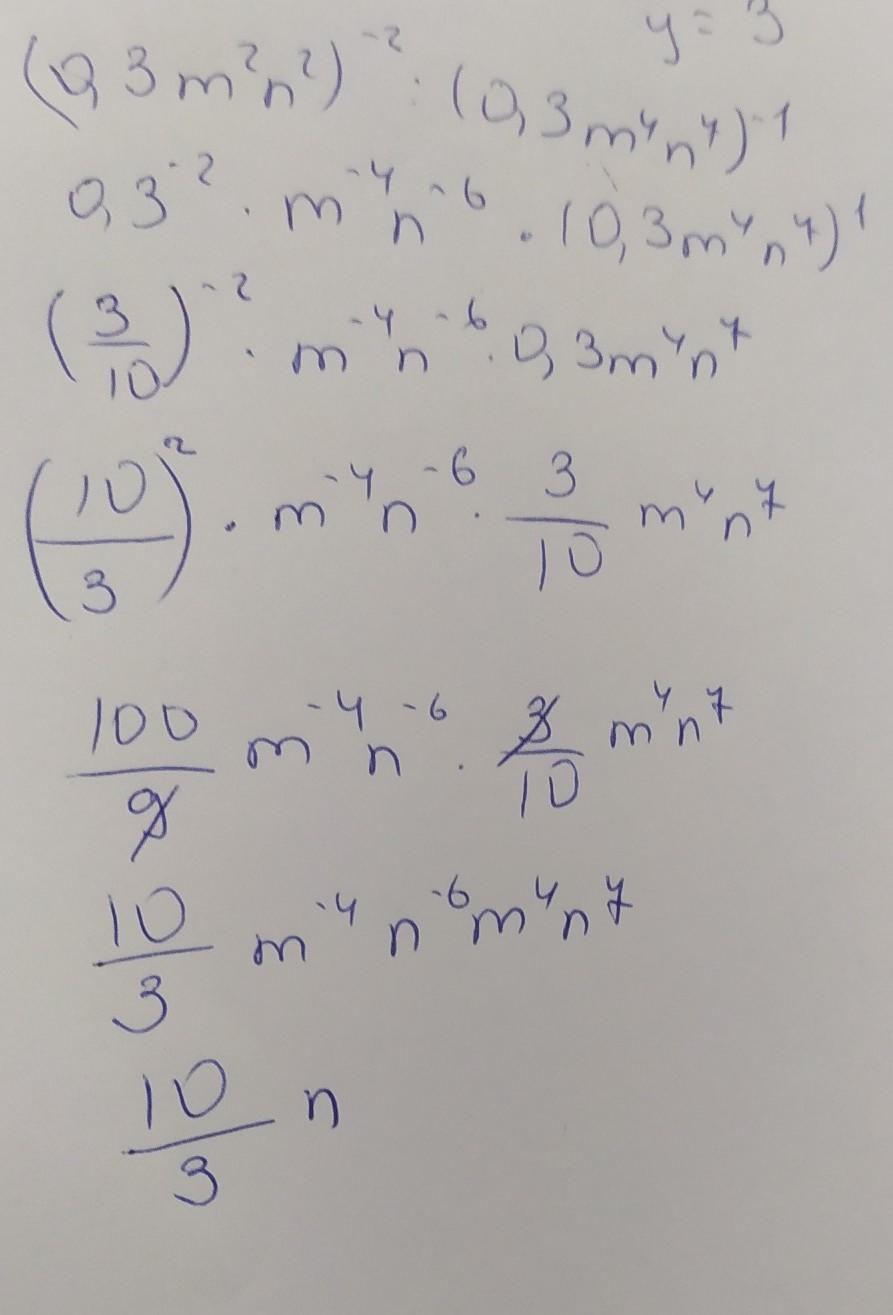 y = 3
(0,3m²n²)⁻² : (0,3m⁴n⁷)⁻¹
0,3⁻² · m⁻⁴n⁻⁶ · (0,3m⁴n⁷)¹
(3/10)⁻² · m⁻⁴n⁻⁶ · 0,3m⁴n⁷
(10/3)² · m⁻⁴n⁻⁶ · 3/10 m⁴n⁷
100/9 m⁻⁴n⁻⁶ · 3/10 m⁴n⁷
10/3 m⁻⁴n⁻⁶m⁴n⁷
10/3 n